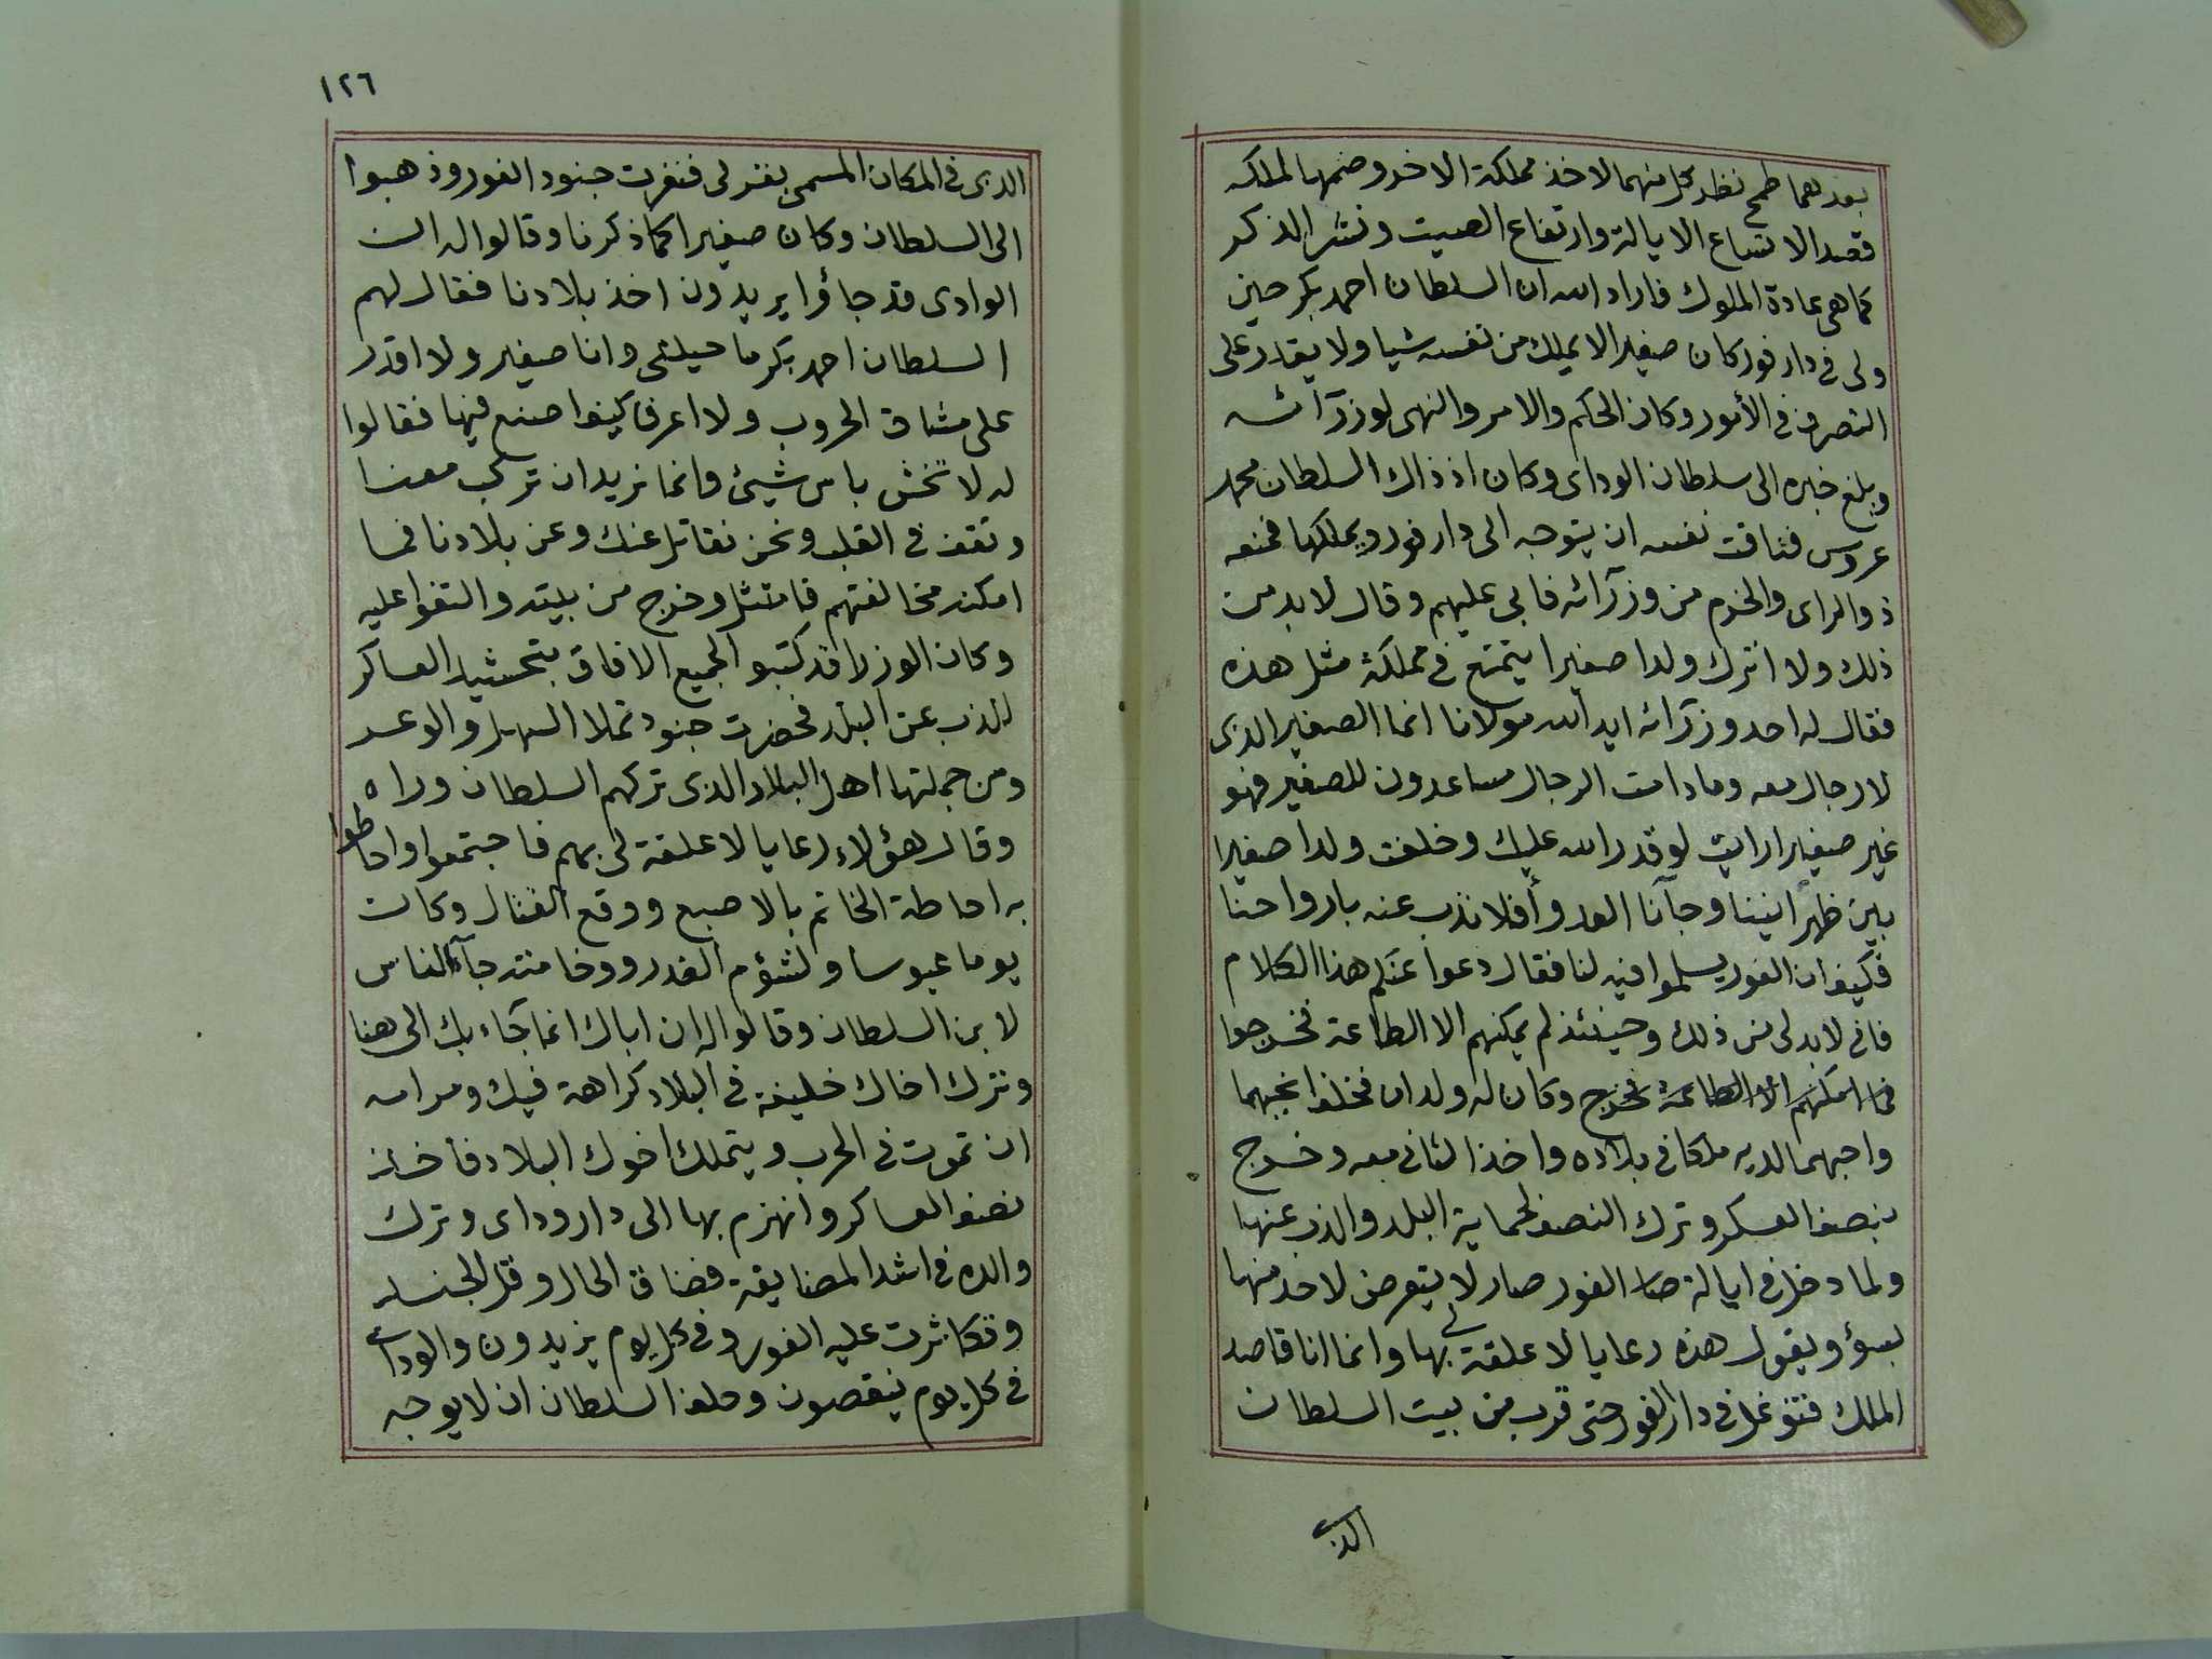 بعدهما طمح نظر كل منهما لاخذ مملكة الاخر وضمها لملكه
قصد الاتساع الايالة وارتفاع الصيت ونشر الذكر
كما هى عادة الملوك فاراد الله ان السلطان احمد بكر حين
ولى فى دار فور كان صغيرا لا يملك من نفسه شيا ولا يقدر على
التصرف فى الأمور وكان الحكم والامر والنهى لوزرآئه
وبلغ خبره الى سلطان الوداى وكان اذ ذاك السلطان محمد
عروس فتاقت نفسه ان يتوجه الى دار فور ويملكها فمنعه
ذوالراى والحزم من وزرآئه فابى عليهم وقال لابد من
ذلك ولا اترك ولدا صغيرا يتمتع فى مملكة مثل هذه
فقال له احد وزرآئه ايد الله مولانا انما الصغير الذى
لا رجال معه وما دامت الرجال مساعدون للصغير فهو
غير صغير ارايت لو قدر الله عليك وخلفت ولدا صغيرا
بين ظهرانينا وجآنا العدو أفلا نذب عنه بارواحنا
فكيف ان الفور يسلموا فيه لنا فقال دعوا عنكم هذا الكلام
فانى لابد لى من ذلك وحينئذ لم يمكنهم الا الطاعة فخرجوا
فما امكنهم الا الطاعة فخرج وكان له ولدان فخلف انجبهما
واحبهما لديه ملكا فى بلاده واخذ الثانى معه وخرج
بنصف العسكر وترك النصف لحماية البلد والذب عنها
ولما دخل فى ايالة صا الفور صار لا يتعرض لاحد منها
بسؤ ويقول هذه رعايا لا علقة لى بها وانما انا قاصد
الملك فتوغل فى دار الفور حتى قرب من بيت السلطان
الذى
١٢٦
الذى فى المكان المسمى بقرلى فنفرت جنود الفور وذهبوا
الى السلطان وكان صغيرا كما ذكرنا وقالوا له ان
الوادى قد جاؤا يريدون اخذ بلادنا فقال لهم
السلطان احمد بكر ما حيلتى وانا صغير ولا اقدر
على مشاق الحروب ولا اعرف كيف اصنع فيها فقالوا
له لا تخش باس شيئ وانما نريد ان تركب معنا
وتقف فى القلب ونحن نقاتل عنك وعن بلادنا فما
امكنه مخالفتهم فامتثل وخرج من بيته والتفوا عليه
وكان الوزرا قد كتبو الجميع الافاق بتحشيد العساكر
للذب عن البلد فحضرت جنود تملا السهل والوعر
ومن جملتها اهل البلاد الذى تركهم السلطان وراه
وقال هؤلاء رعايا لا علقة لى بهم فاجتمعوا واحاطوا
به احاطة الخاتم بالاصبع ووقع القتال وكان
يوما عبوسا ولشؤم الغدر ووخامته جآء الناس
لابن السلطان وقالوا له ان اباك انما جآء بك الى هنا
وترك اخاك خليفة فى البلاد كراهة فيك ومرامه
ان تموت فى الحرب ويتملك اخوك البلاد فاخذ
نصف العساكر وانهزم بها الى دار وداى وترك
والده فى اشد المضايقة فضاق الحال وقل الجند
وتكاثرت عليه الفور وفى كل يوم يزيدون والوداى
فى كل يوم ينقصون وحلف السلطان ان لا يوجه